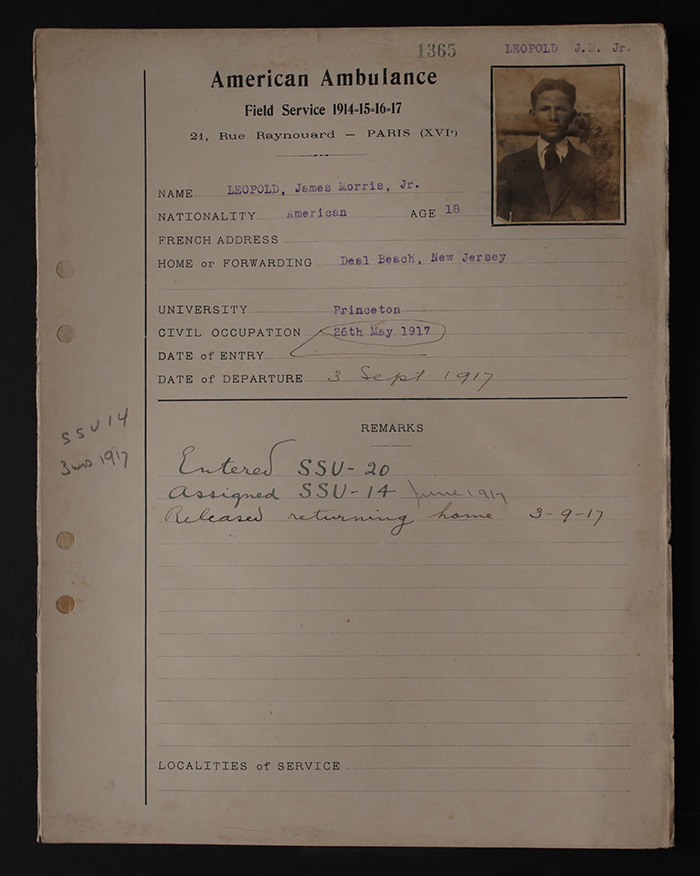 1365
LEOPOLD J.M. Jr.
American Ambulance
Field Service 1914-15-16-17
21, Rue Raynouard — PARIS (XVIᵉ)
NAME LEOPOLD, James Morris, Jr.
NATIONALITY American AGE 18
FRENCH ADDRESS
HOME or FORWARDING Deal Beach, New Jersey
UNIVERSITY Princeton
CIVIL OCCUPATION 26th May 1917
DATE of ENTRY
DATE of DEPARTURE 3 Sept 1917
REMARKS
SSU 14
3 1917
Entered SSU-20
Assigned SSU-14 June 1917
Released returning home 3-9-17
LOCALITIES of SERVICE